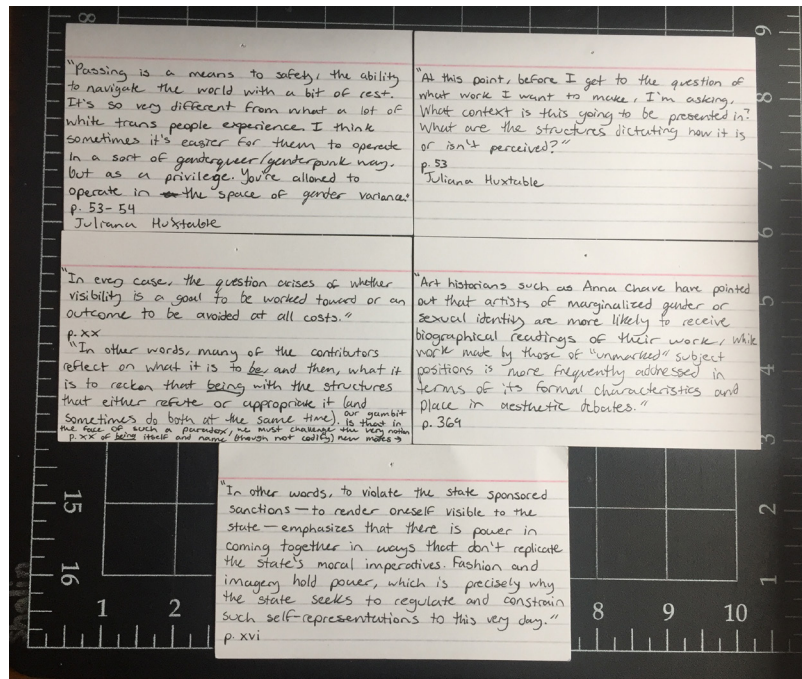 "Passing is a means to safety, the ability
to navigate the world with a bit of rest.
It's so very different from what a lot of
white trans people experience. I think
sometimes it's easier for them to operate
in a sort of genderqueer/genderpunk way,
but as a privilege. You're allowed to
operate in the space of gender variance."
p. 53-54
Juliana Huxtable
"At this point, before I get to the question of
what work I want to make, I'm asking,
What context is this going to be presented in?
What are the structures dictating how it is
or isn't perceived?"
p. 53
Juliana Huxtable
"In every case, the question arises of whether
visibility is a goal to be worked toward or an
outcome to be avoided at all costs."
p. xx
"In other words, many of the contributors
reflect on what it is to be and then, what it
is to reckon that being with the structures
that either refute or appropriate it (and
sometimes do both at the same time). Our gambit
is that in
the face of such a paradox, we must challenge the very notion
p. xx of being itself and name (though not codify) new modes →
"Art historians such as Anna Chave have pointed
out that artists of marginalized gender or
sexual identity are more likely to receive
biographical readings of their work, while
work made by those of "unmarked" subject
positions is more frequently addressed in
terms of its formal characteristics and
place in aesthetic debates."
p. 369
"In other words, to violate the state sponsored
sanctions — to render oneself visible to the
state — emphasizes that there is power in
coming together in ways that don't replicate
the state's moral imperatives. Fashion and
imagery hold power, which is precisely why
the state seeks to regulate and constrain
such self-representations to this very day."
p. xvi
8
9
8
7
6
5
4
3
2
1
15
16
1
2
8
9
10